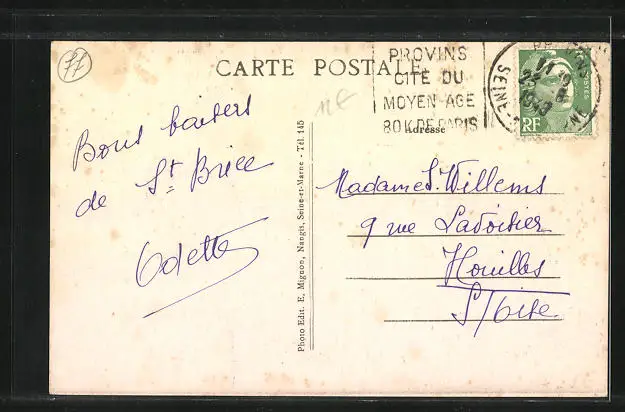 77
CARTE POSTALE
PROVINS
CITÉ DU
MOYEN-AGE
80K DE PARIS
PROVINS
SEINE
1949
RF
POSTES
Adresse
Bons baisers
de St Brice
Odette
Photo Edit. E. Mignon, Nangis, Seine-et-Marne - Tél. 145
Madame S. Willems
9 rue Lavoisier
Houilles
S/Oise